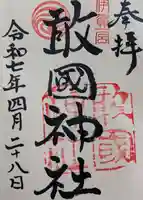 奉拝
敢國神社
令和七年四月二十八日